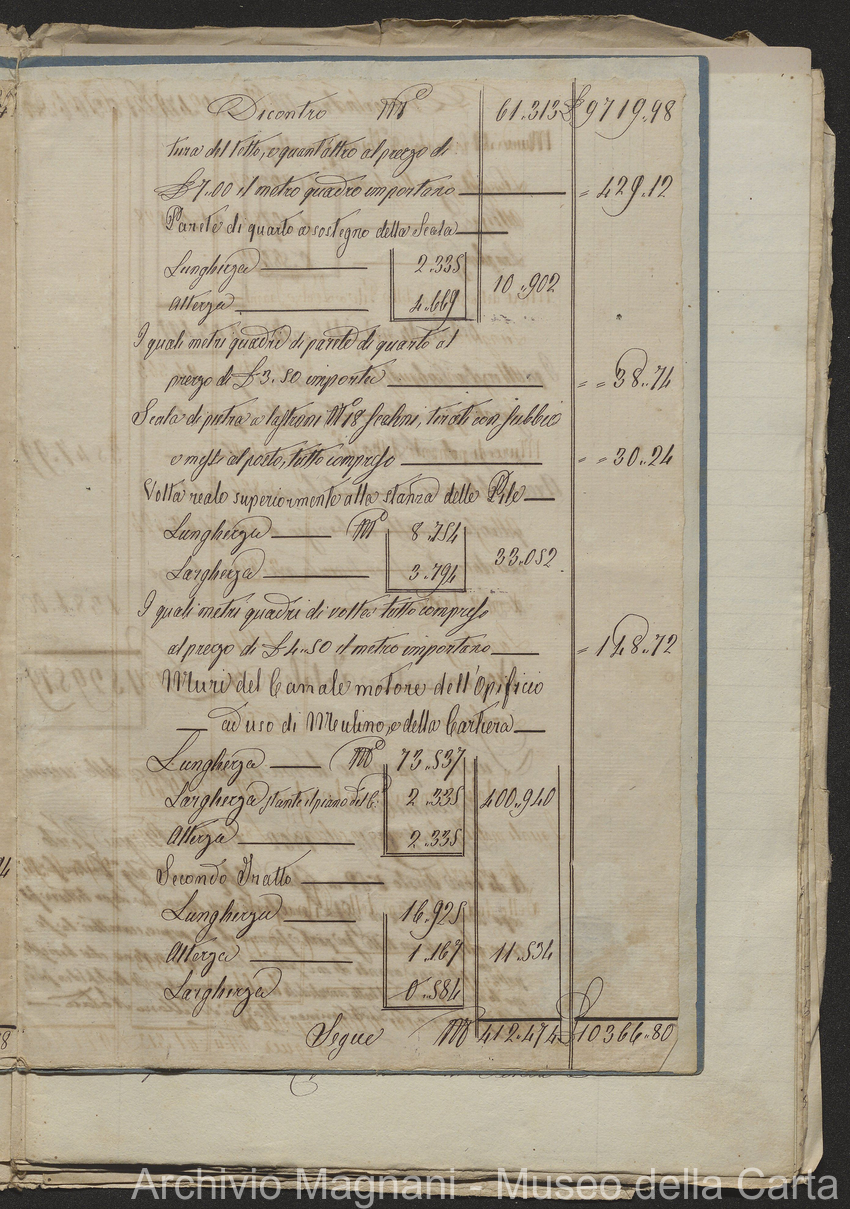 Dicontro Mº 61..313 £ 9719..98
tura del tetto, e quant'altro al prezzo di
£ 7..00 il metro quadro importano = 429..12
Parete di quarto a sostegno della Scala
Lunghezza 2..335
10..902
Altezza 4..669
I quali metri quadri di parete di quarto al
prezzo di £ 3..50 importa = = 38..74
Scala di pietra a lastroni Nº 18 Scalini, tirati con subbia
e messi al posto, tutto compreso = = 30..24
Volta reale superiormente alla stanza delle Pile
Lunghezza Mº 8..754
33..052
Larghezza 3..794
I quali metri quadri di volta tutto compreso
al prezzo di £ 4..50 il metro importano = 148..72
Muri del Canale motore dell'Opificio
ad uso di Mulino, e della Cartiera
Lunghezza Mº 73..537
Larghezza stante il piano del C. 2..335 400..940
Altezza 2..335
Secondo Tratto
Lunghezza 16..925
Altezza 1..167 11..534
Larghezza 0..584
Segue Mº 412..474 £ 10366..80
Archivio Magnani - Museo della Carta